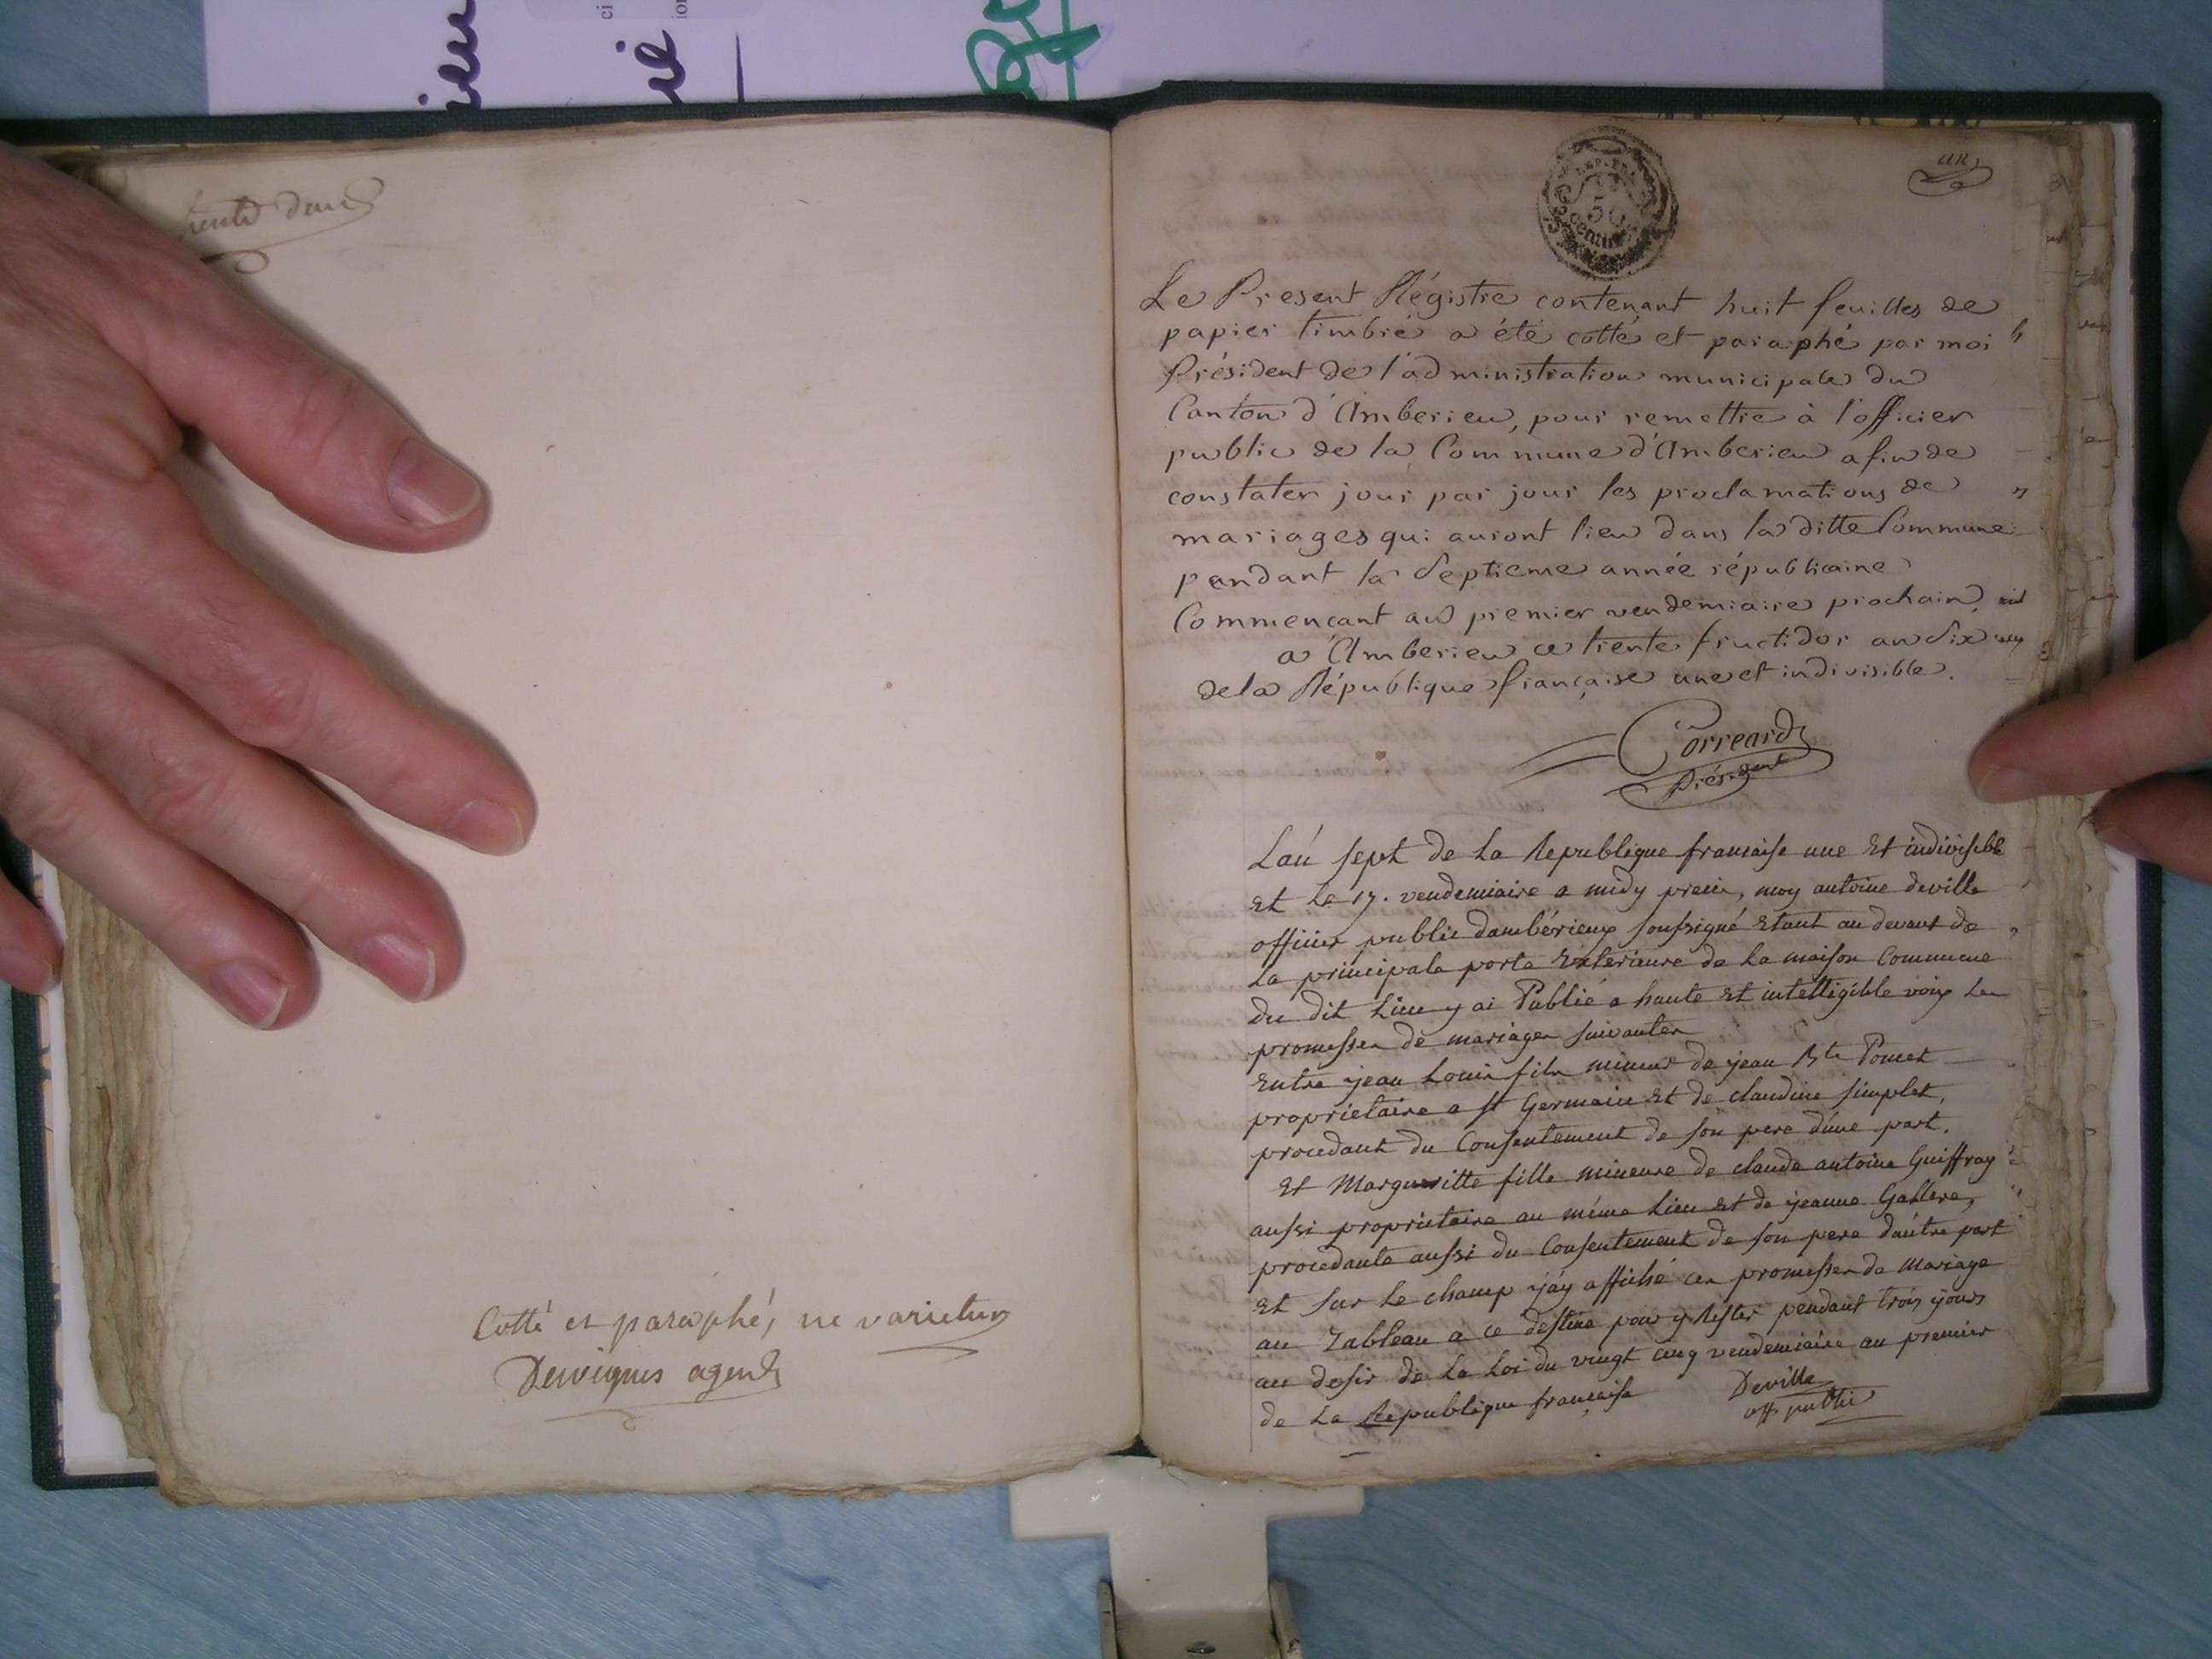 trente deux
Cotté et paraphé, ne varietur
agent
un
50
Le Present Régistre contenant huit feuilles de
papier timbré a été cotté et paraphé par moi
Président de l'administration municipale du
Canton d'Amberieu, pour remettre à l'officier
public de la Commune d'Amberieu afin de
constater jour par jour les proclamations de
mariages qui auront lieu dans la ditte Commune
pendant la Septieme année républicaine
Commencant au premier vendemiaire prochain,
a Amberieu ce trente fructidor an Six
de la République française une et indivisible.
Correard
Président
L'an sept de La Republique francaise une Et indivisible
Et Le 17. vendemiaire a midy precis, moy antoine deville
officier public dambérieux soussigné Etant au devant de
La principale porte Exterieure de La maison Commune
du dit Lieu y ai Publié a haute Et intelligible voix Les
promesses de mariages suivantes
Entre jean Louis fils mineur de jean Bte Pomet
proprietaire a st Germain Et de claudine simplet,
procedant du Consentement de son pere d'une part.
Et Margueritte fille mineure de claude antoine Guiffray
aussi proprietaire au même Lieu Et de jeanne
procedante aussi du Consentement de son pere dautre part
Et sur Le champ j'ay affiché ces promesses de Mariage
au Tableau a ce destiné pour y Rester pendant trois jours
au desir de La Loi du vingt cinq vendemiaire an premier
de La Republique francaise
Deville
off public